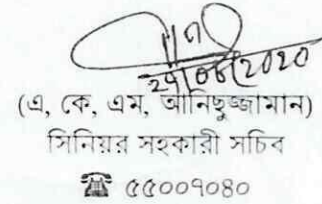 ২৭/০৮/2020
(এ, কে, এম, আনিছুজ্জামান)
সিনিয়র সহকারী সচিব
☎ ৫৫০০৭০৪০